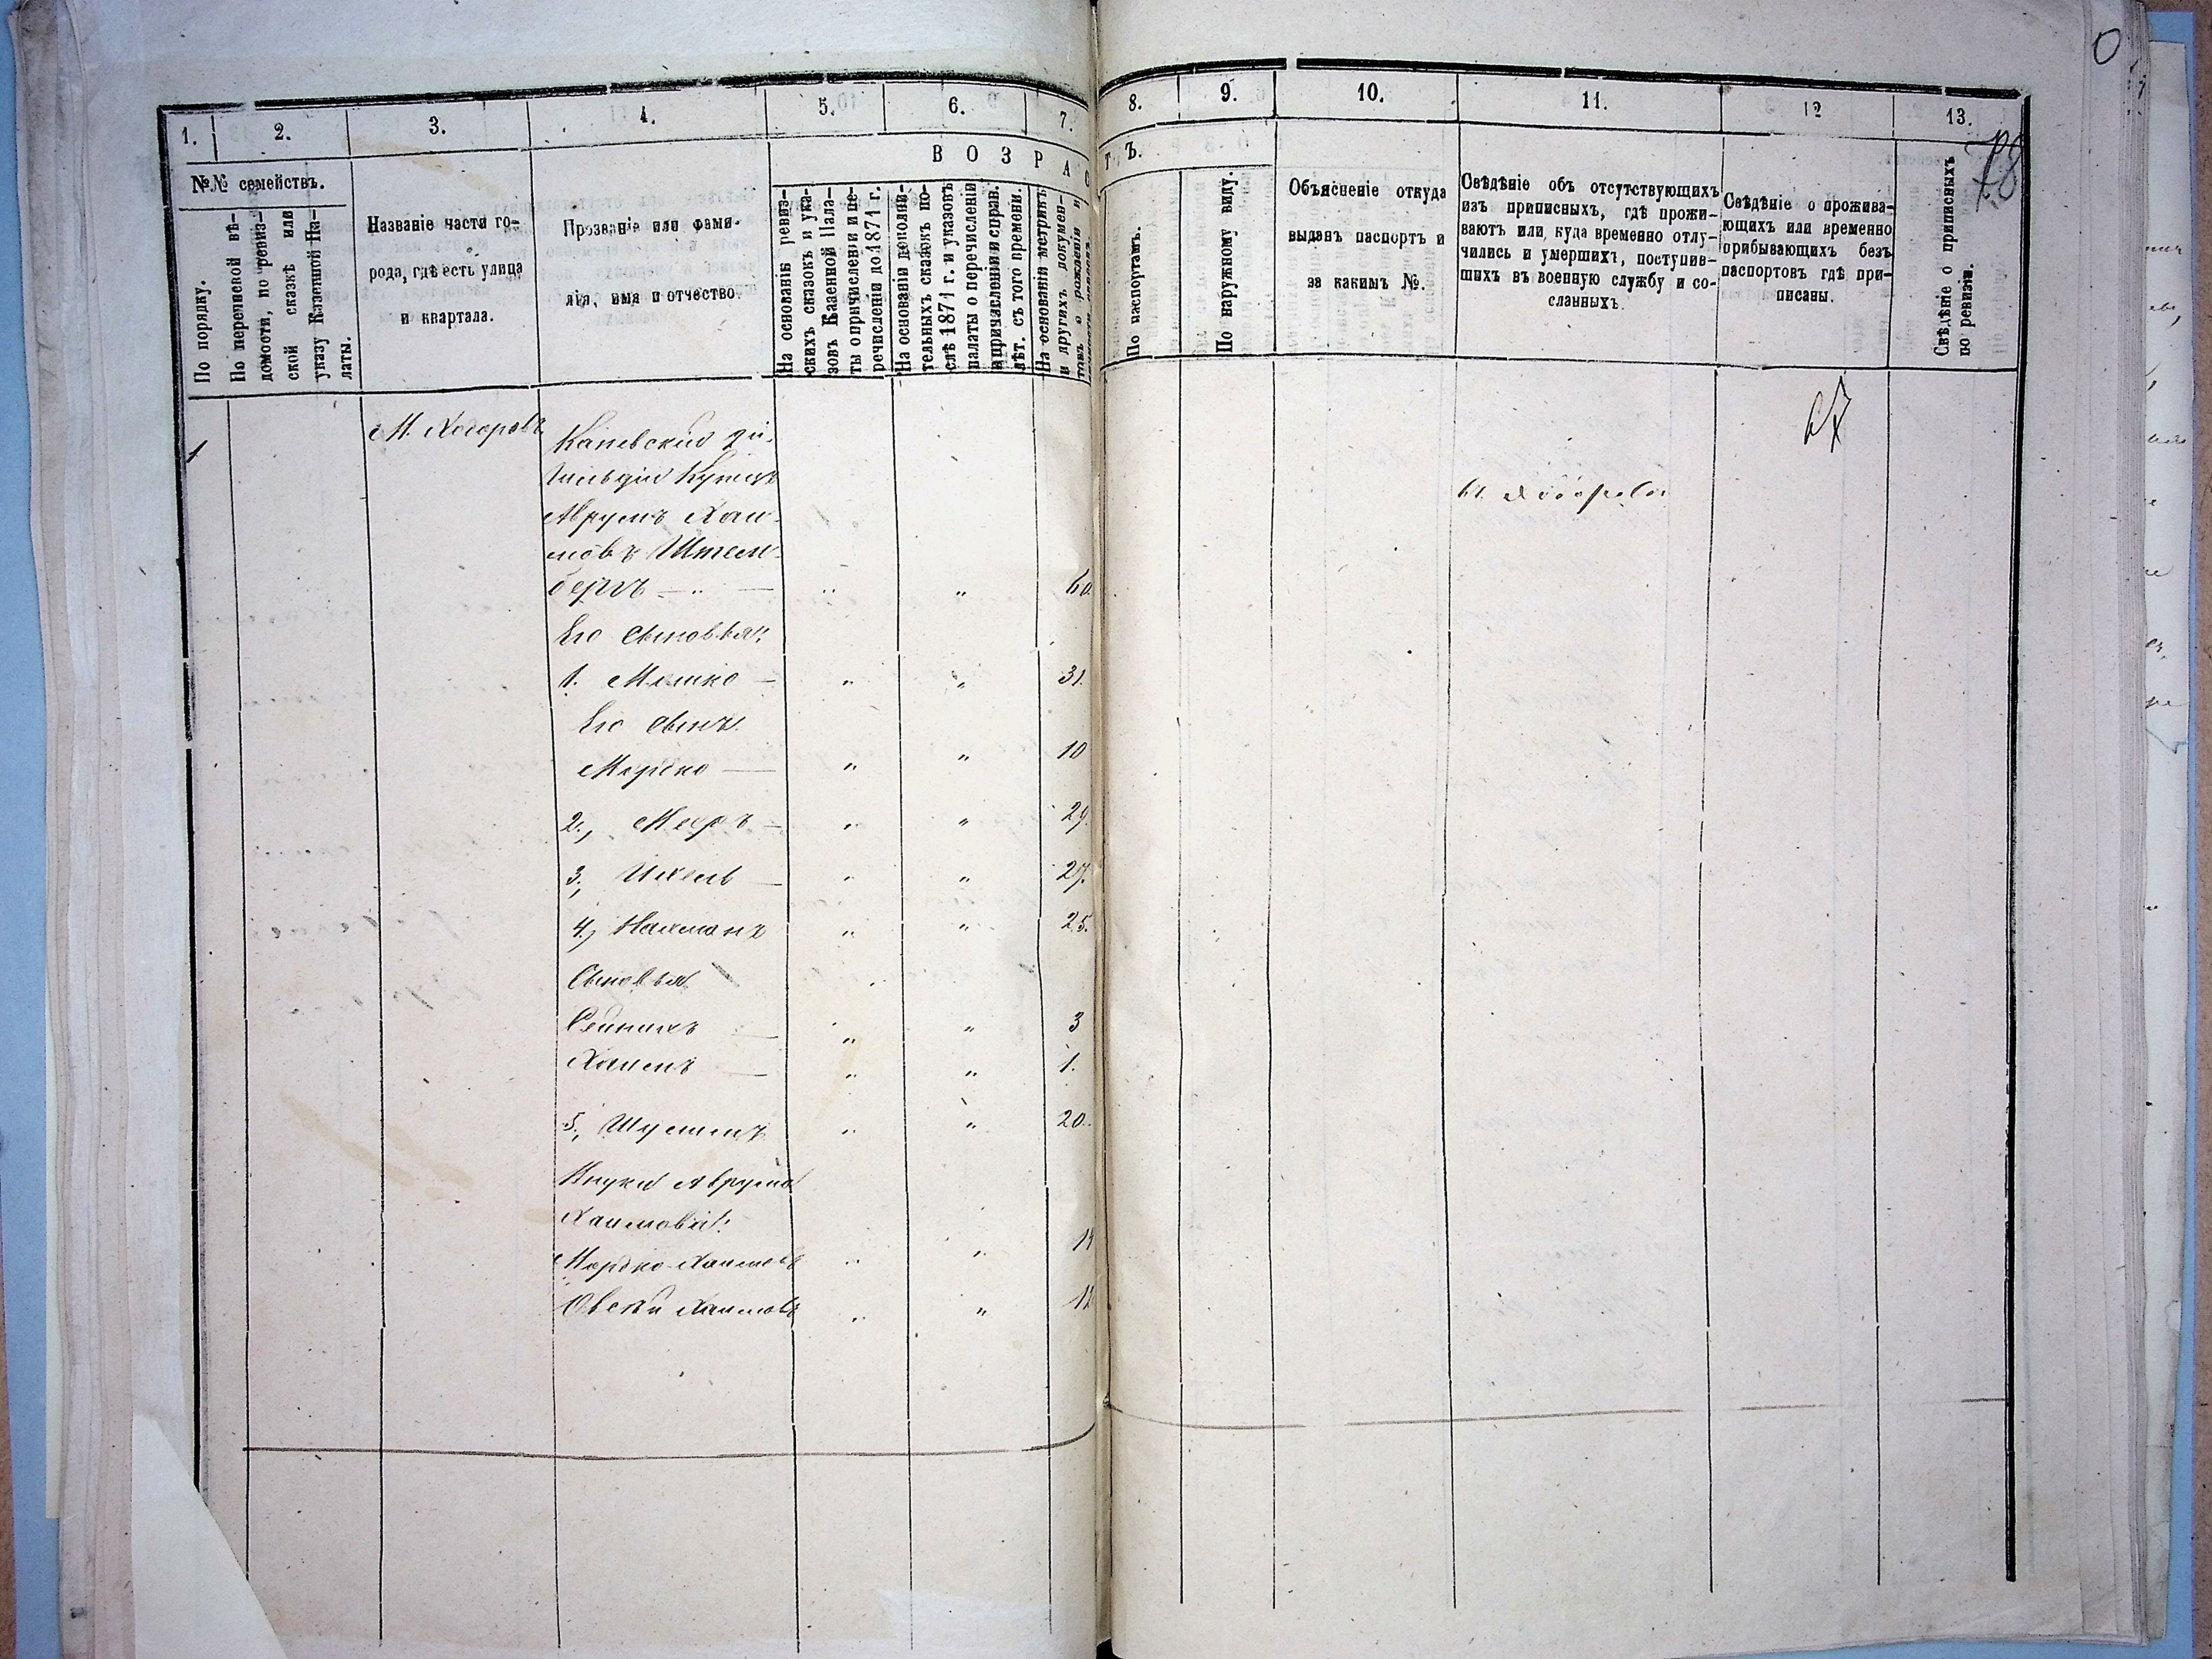 1.
2.
3.
4.
5.
6.
7.
8.
9.
10.
11.
12
13.
78
№№ семействъ.
По порядку.
По переписной вѣ-
домости, по ревиз-
ской сказкѣ или
указу Казенной Па-
латы.
Названіе части го-
рода, гдѣ есть улица
и квартала.
Прозваніе или фами-
лія, имя и отчество.
ВОЗРАСТЪ.
На основанiи ревиз-
скихъ сказокъ и ука-
зовъ Казенной Пала-
ты о причисленіи и пе-
речисленіи до 1871 г.
На основаніи дополни-
тельныхъ сказокъ по-
слѣ 1871 г. и указовъ
палаты о перечисленіи
и причисленіи справ.
лѣт. съ того времени.
На основаніи метрикъ
и другихъ докумен-
товъ о рожденіи и
По паспортамъ.
По наружному виду.
Объясненіе откуда
выданъ паспортъ и
за какимъ №.
Свѣдѣніе объ отсутствующихъ
изъ приписныхъ, гдѣ прожи-
ваютъ или, куда временно отлу-
чились и умершихъ, поступив-
шихъ въ военную службу и со-
сланныхъ.
Свѣдѣніе о прожива-
ющихъ или временно
прибывающихъ безъ
паспортовъ гдѣ при-
писаны.
Свѣдѣніе о приписныхъ
по ревизіи.
1
М. Ходоровъ
Каневскій 2й
Гильдіи Купецъ
Аврумъ Хаи-
мовъ Штейн-
бергъ — " — " " 60.
Его Сыновья:
1. Мошко — " " 31.
Его сынъ
Мордко — " " 10
2., Мееръ — " " 29.
3., Ихель — " " 27.
4., Нахманъ " " 25.
Сыновья
" " 3
Хаимъ — " " 1.
5., " " 20.
Внуки Аврума
Хаимова:
Мордко Хаимовъ " " 14
Овсей Хаимовъ " " 12